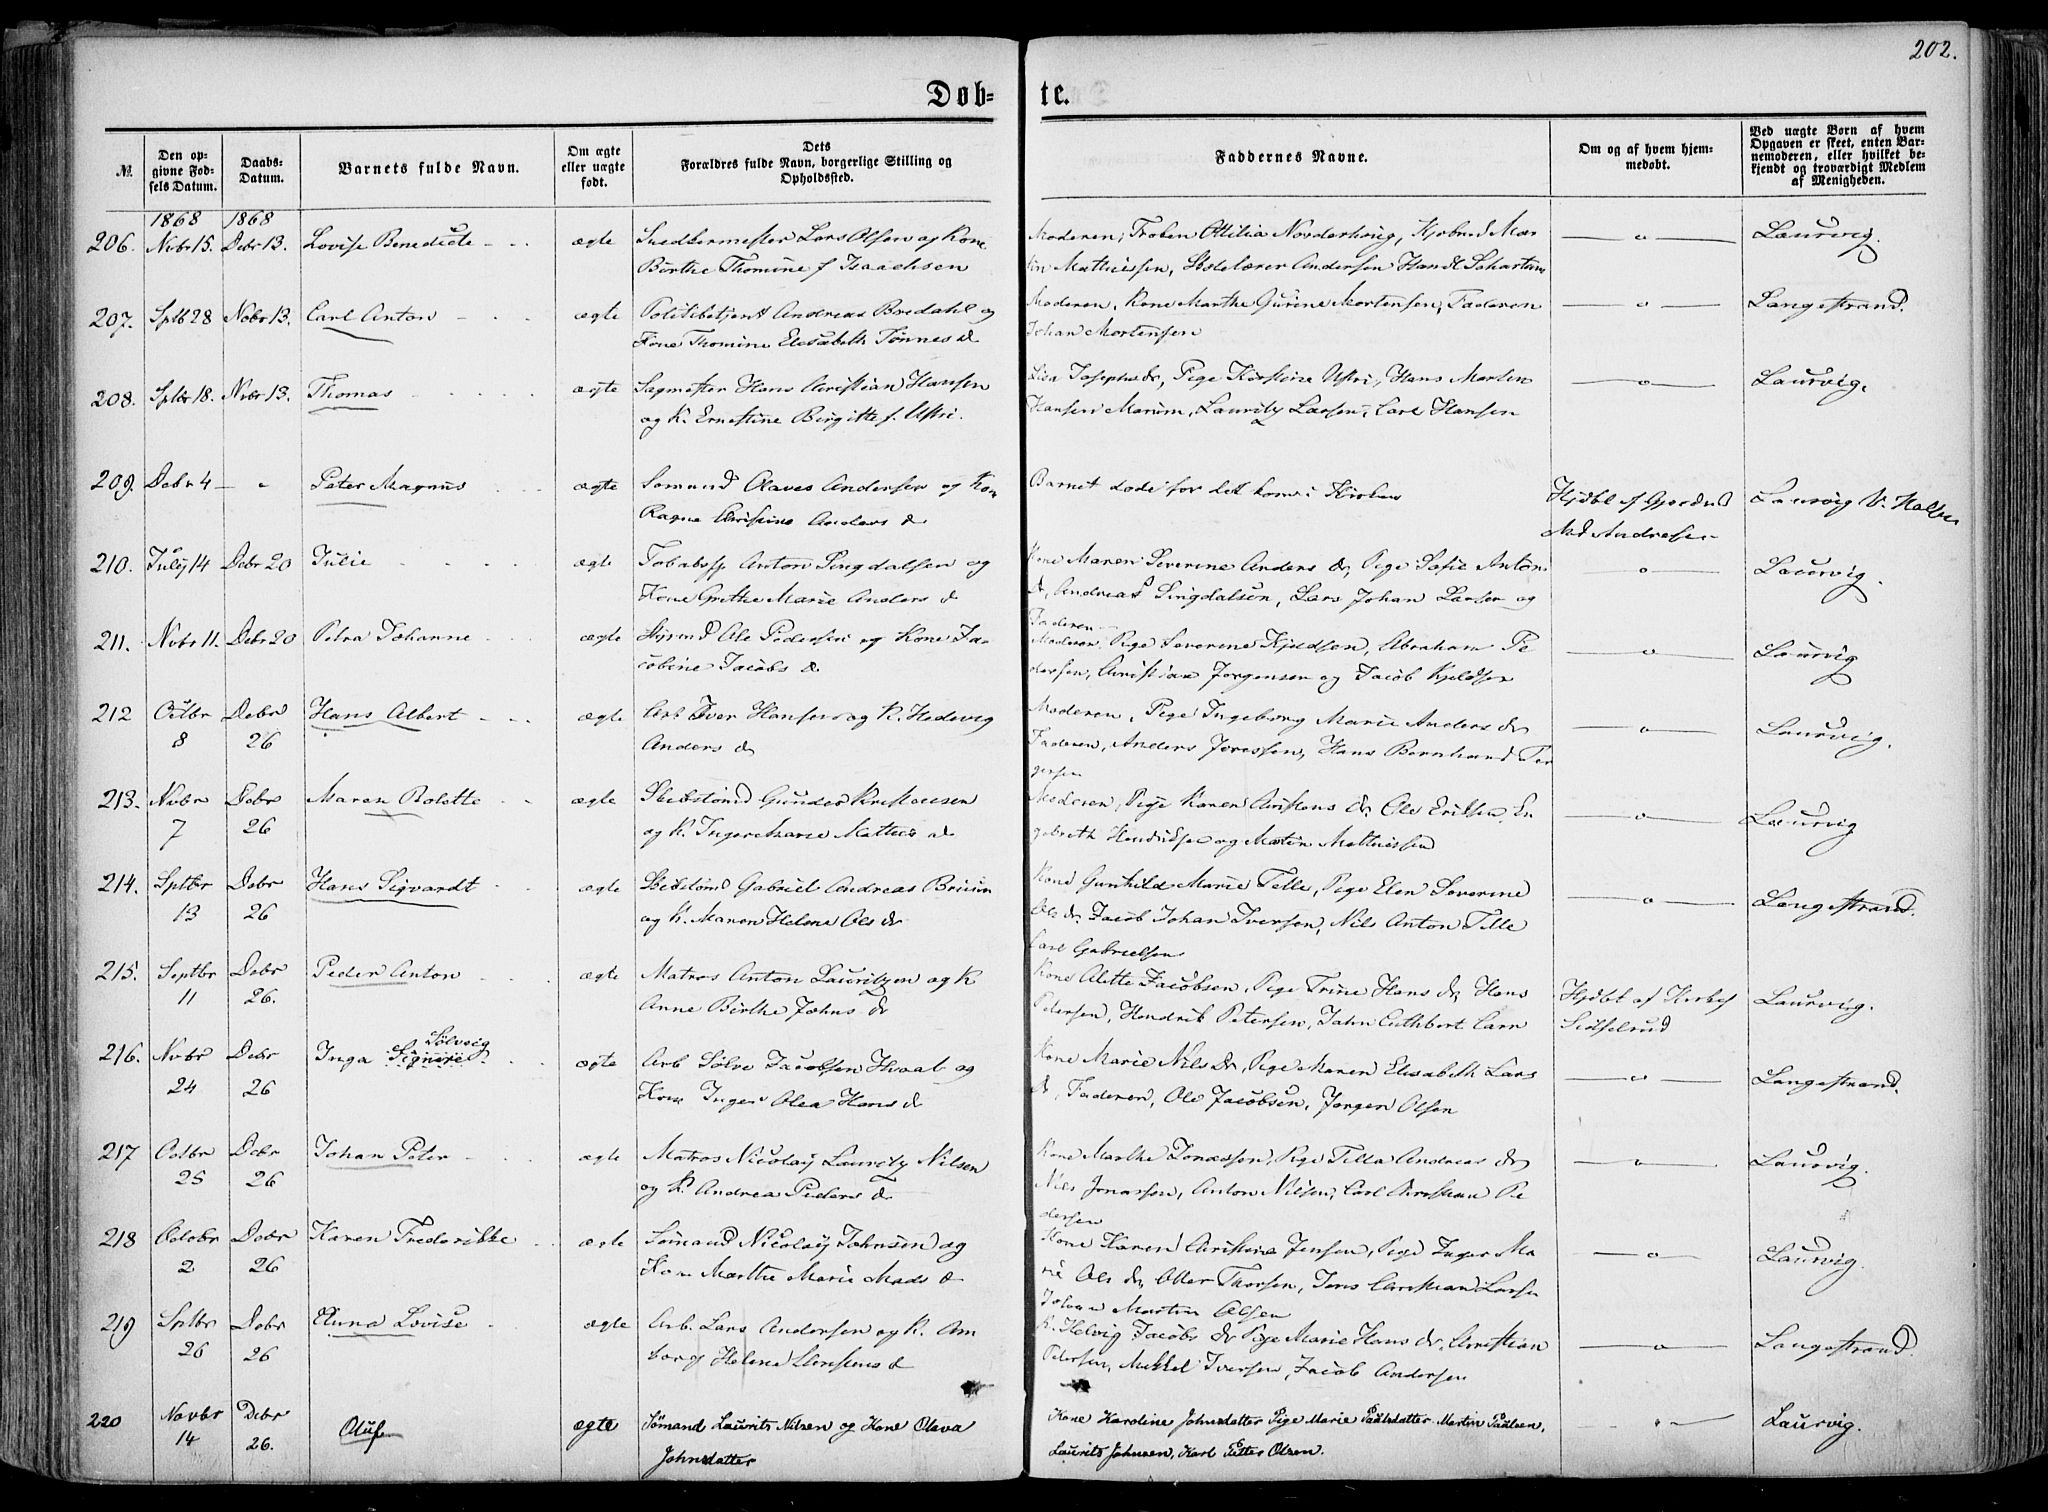 202.
Døb-
te.
№.
Den op-
givne Fød-
sels Datum.
Daabs-
Datum.
Barnets fulde Navn.
Om ægte
eller uægte
født.
Dets
Forældres fulde Navn, borgerlige Stilling og
Opholdssted.
Faddernes Navne.
Om og af hvem hjem-
medøbt.
Ved uægte Børn af hvem
Opgaven er skeet, enten Bar-
nemoderen, eller hvilket be-
kjendt og troværdigt Medlem
af Menigheden.
1868 1868
206. Nvbr 15. Debr 13. Lovise Benedicte ægte Snedkermester Lars Olsen og Kone Moderen, Frøken Ottilia Norderhoug, Laurvig.
Birthe Thomine f Isaachsen Mathiessen, Andersen
207. Sptb 28 Nobr 13. Carl Anton ægte Politibetjent Andreas Bredahl og Moderen, Kone Marthe Gurine Mortensen, Faderen Langestrand.
Kone Thomine Elisabeth Tønnes d Johan Mortensen
208. Sptbr 18. Nvbr 13. Thomas ægte Sagmester Hans Christian Hansen Lisa Josephsdr, Pige Kirstine, Hans Morten Laurvig.
og K. Ernestine Birgitte f. Hansen, Lauritz Larsen, Carl Hansen
209. Debr 4 Peter Magnus ægte Sømand Olaves Andersen og Kone Barnet døde før det kom i Kirken Hjdbt af Gjordmd Laurvig
Ragna Christine Anders d Mad Andresen
210. July 14 Debr 20 Julie ægte Anton Singdalsen og Kone Maren Severine Anders dr, Pige Sofie Anton Laurvig.
Kone Grethe Marie Anders d d, Andreas Singdalsen, Lars Johan Larsen og
Faderen
211. Nvbr 11. Debr 20 Petra Johanne ægte Ole Pedersen og Kone Ja- Moderen, Pige Severine Kjeldsen, Abraham Pe Laurvig
cobine Jacobs d dersen, Christian Jørgensen og Jacob Kjeldsen
212 Octbr Debr Hans Albert ægte Arb Iver Hansen og K. Hedevig Moderen, Pige Ingeborg Marie Anders dr Laurvig.
8 26 Anders d Faderen, Anders Hans Bernhard
213. Nvbr Debr Maren ægte Gunder Kristensen Moderen, Pige Karen Cristens dr, Ole Eriksen, En Laurvig
7 26 og K. Inger Marie Mathis d gebreth Hendriksen og Martin Mathissen
214. Sptbr Debr Hans Sigvardt ægte Gabriel Andreas Kone Gunhild Marie Telle, Pige Elen Severine Langestrand.
13 26 og K. Maren Helene Ols dr Ols dr, Jacob Johan Iversen, Nils Anton Telle
Carl Gabrielsen
215. Septbr Debr Peder Anton ægte Matros Anton Lauritzen og K Kone Alette Jacobsen, Pige Trine Hans dr, Hans Hjdbt af Laurvig.
11 26. Anne Birthe Johns dr Petersen, Hendrik Petersen, John Cuthbert
216. Nvbr Debr Inga Signire Sølveig ægte Arb Sølve Jacobsen Hvaal og Kone Marie Nils dr, Pige Maren Elisabeth Lars Langestrand.
24 26 Kone Inger Olea Hans d d, Faderen, Ole Jacobsen, Jørgen Olsen
217 Octbr Debr Johan Peter ægte Matros Nicolaÿ Lauritz Nilsen Kone Marthe Jonassen, Pige Tilla Andreas dr Laurvig.
25 26 og K. Andrea Peders d Nils Jonassen, Anton Nilsen, Carl Christian Pe
dersen
218 Octobr Debr Karen Frederikke ægte Sømand Nicolaÿ Johnsen og Kone Karen Christine Jensen, Pige Inger Ma Laurvig.
2 26 Kone Marthe Marie Mads d rie Ols dr, Thorsen, Jens Christian Larsen
Johan Martin Olsen
219 Sptbr Debr Anna Lovise ægte Arb. Lars Andersen og K. Am K. Helvig Jacobs dr Pige Marie Hans dr, Christian Langestrand.
26 26 borg Helene d Petersen, Mikkel Iversen, Jacob Andersen
220 Novbr Debr Oluf ægte Sømand Laurits Nilsen og Kone Olava Kone Karoline Johnsdatter Pige Marie Paulsdatter Martin Paulsen, Laurvig.
14 26. Johnsdatter Laurits Johnsen, Karl Petter Olsen.